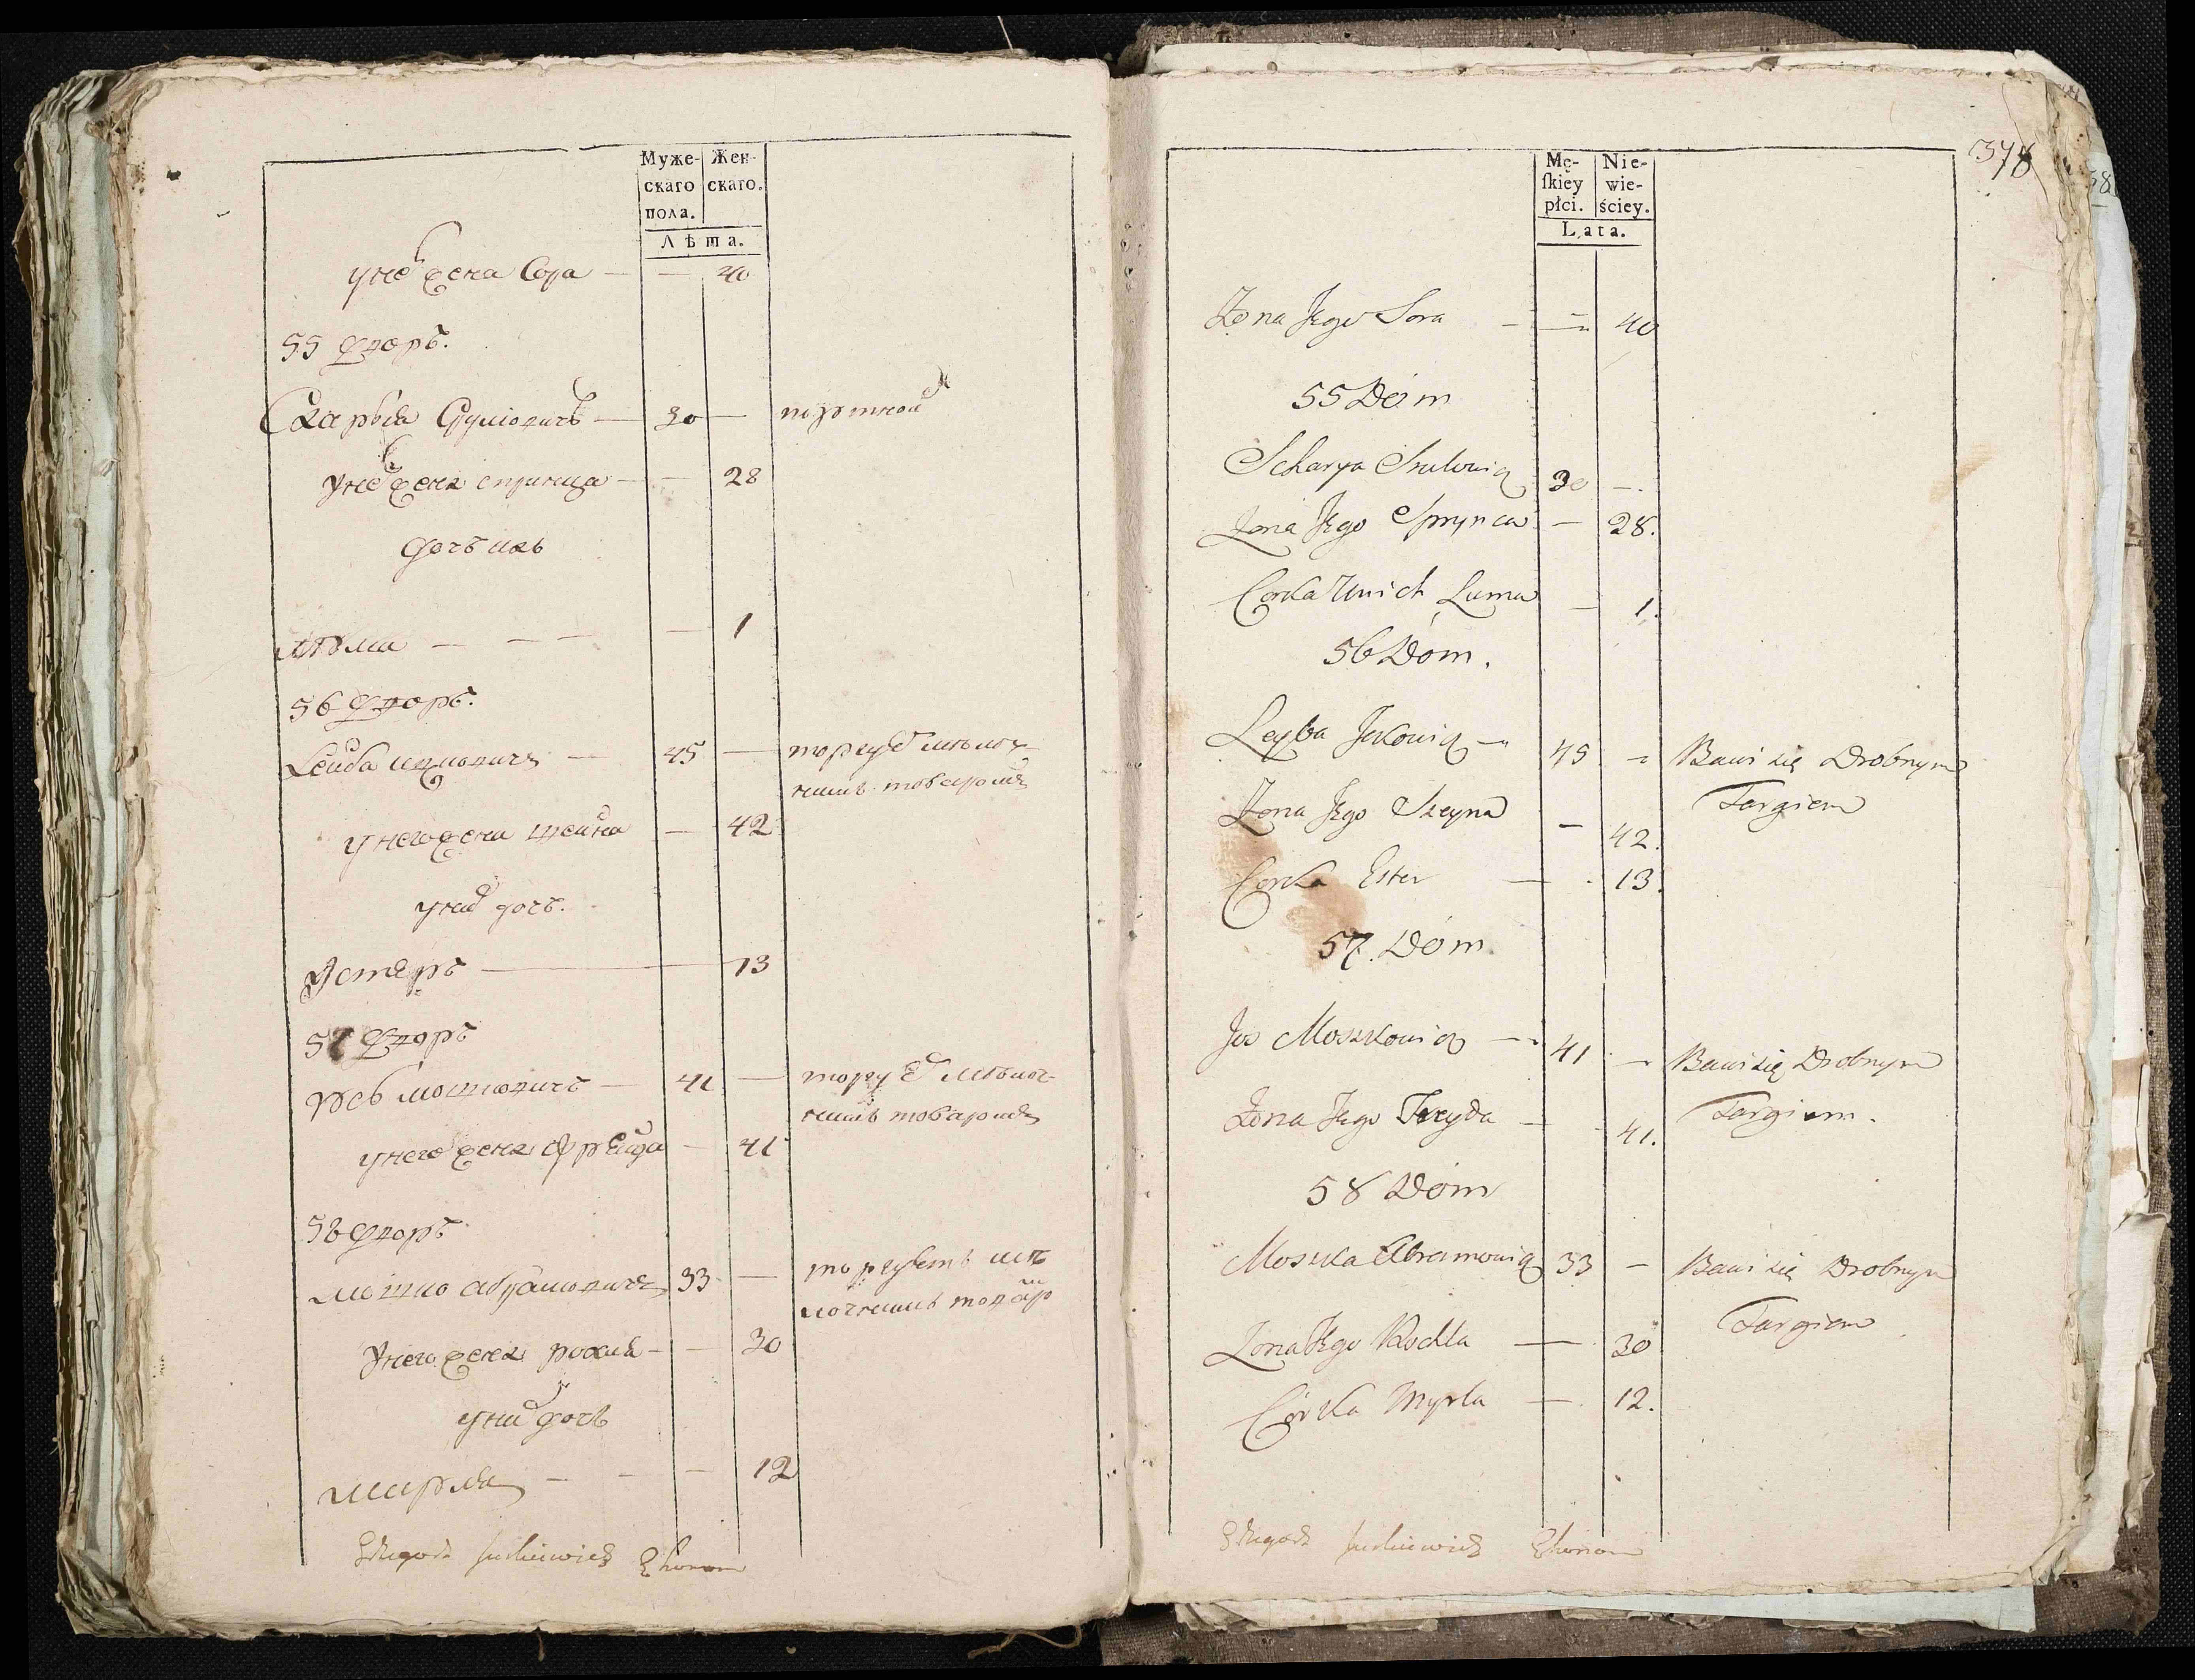 Муже-
скаго
пола.
Жен-
скаго.
Лѣта.
у него жена Сора — — 40
55 дворъ.
Скарыя Срулiовичъ — 30 — портной
у него жена спринца — — 28
дочь ихъ
люма — — — — 1
56 дворъ.
Лейба ицковичъ — 45 — торгуетъ мелоч-
нымъ товаромъ
у него жена шейна — 42
у нихъ дочь.
Эстеръ — 13
57 дворъ
мошковичъ — 41 — торгуетъ мелоч-
нымъ товаромъ
у него жена фрейда — 41
58 дворъ
мошко абрамовичъ 33 — торгуетъ ме
лочнымъ товар
у него жена рохля — — 30
у нихъ дочь
мирля — — — 12
Ekonom
378
Mę-
ſkiey
płci.
Nie-
wie-
ściey.
Lata.
Zona Jego Sora — — 40
55 Dóm
Scharya Srulowicz 30 —.
Zona Jego Sprynca — 28.
Corka Unich Luma — 1.
56 Dóm.
Leyba Jckowicz — 45 — Bawi się Drobnym
Targiem
Zona Jego Szeyna — 42.
Corka Ester — 13.
57. Dóm
Jos Moszkowicz — 41 — Bawi się Drobnym
Targiem.
Zona Jego Freyda — 41.
58 Dóm
Moszka Abramowicz 33 — Bawi się Drobnym
Targiem
Zona Jego Rochla — 30
Córka Myrla — 12.
Ekonom